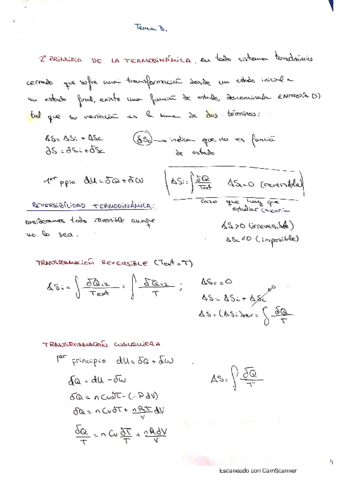 Tema 3.
2º PRINCIPIO DE LA TERMODINÁMICA, en todo sistema termodinámico
cerrado que sufre una transformación desde un estado inicial a
su estado final, existe una función de estado, denominada ENTROPÍA (S)
tal que su variación es la suma de dos términos:
ΔS = ΔSi + ΔSc
(δSc) → indica que no es función
dS = δSi + δSc
de estado
1er ppio dU = δQ + δW
ΔSi = ∫ δQ/Text
ΔSc = 0 (reversible)
REVERSIBILIDAD TERMODINÁMICA:
caso que hay que
estudiar
consideramos todo reversible aunque
no lo sea.
ΔSc > 0 (irreversible)
ΔSc < 0 (imposible)
TRANSFORMACIÓN REVERSIBLE (Text = T)
ΔSi = ∫ δQ1,2/Text = ∫ δQ1,2/T ;
ΔSc = 0
ΔS = ΔSi + ΔSc 0
ΔS = (ΔSi)rev = ∫ δQ/T
TRANSFORMACIÓN CUALQUIERA
1er principio dU = δQ + δW
δQ = dU - δW
ΔS = ∫ δQ/T
δQ = nCvdT - (-PdV)
δQ = nCvdT + nRT/V dV
δQ/T = nCv dT/T + nRdV/V
Escaneado con CamScanner